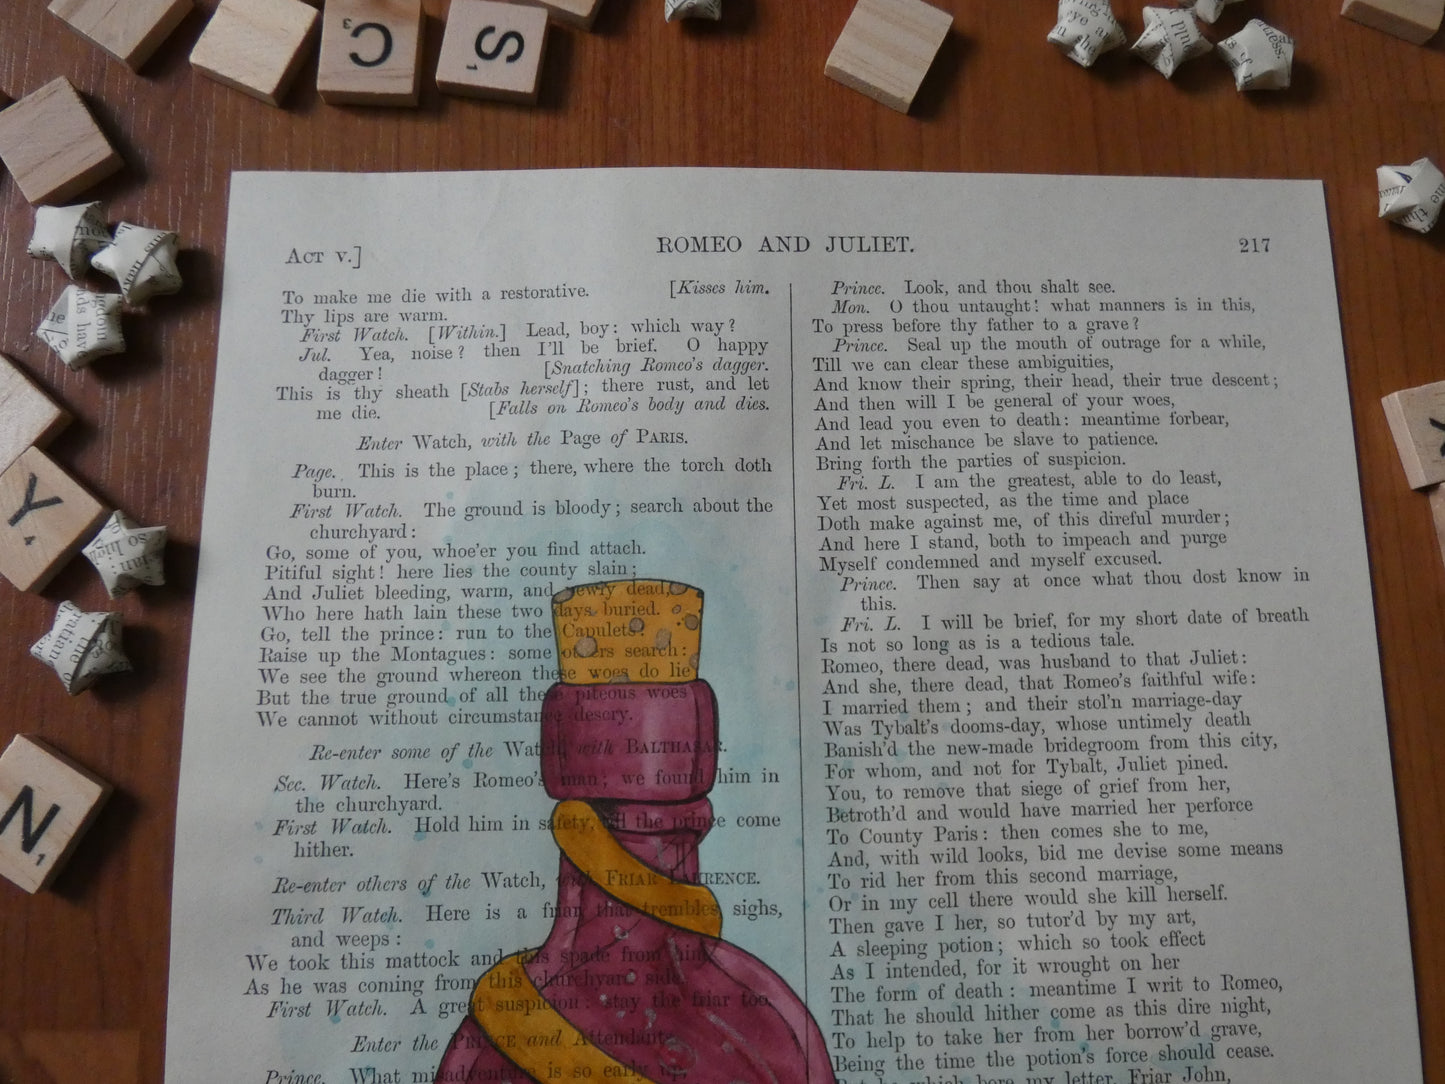 C3
S1
Y4
N1
ACT V.]
ROMEO AND JULIET.
217
To make me die with a restorative. [Kisses him.
Thy lips are warm.
First Watch. [Within.] Lead, boy: which way?
Jul. Yea, noise? then I'll be brief. O happy
dagger! [Snatching Romeo's dagger.
This is thy sheath [Stabs herself]; there rust, and let
me die. [Falls on Romeo's body and dies.
Enter Watch, with the Page of PARIS.
Page. This is the place; there, where the torch doth
burn.
First Watch. The ground is bloody; search about the
churchyard:
Go, some of you, whoe'er you find attach.
Pitiful sight! here lies the county slain;
And Juliet bleeding, warm, and newly dead,
Who here hath lain these two days buried.
Go, tell the prince: run to the Capulets:
Raise up the Montagues: some others search:
We see the ground whereon these woes do lie
But the true ground of all these piteous woes
We cannot without circumstance descry.
Re-enter some of the Watch, with BALTHASAR.
Sec. Watch. Here's Romeo's man; we found him in
the churchyard.
First Watch. Hold him in safety, till the prince come
hither.
Re-enter others of the Watch, with FRIAR LAURENCE.
Third Watch. Here is a friar that trembles, sighs,
and weeps:
We took this mattock and this spade from him,
As he was coming from this churchyard side.
First Watch. A great suspicion: stay the friar too.
Enter the PRINCE and Attendants.
Prince. What misadventure is so early up,
Prince. Look, and thou shalt see.
Mon. O thou untaught! what manners is in this,
To press before thy father to a grave?
Prince. Seal up the mouth of outrage for a while,
Till we can clear these ambiguities,
And know their spring, their head, their true descent;
And then will I be general of your woes,
And lead you even to death: meantime forbear,
And let mischance be slave to patience.
Bring forth the parties of suspicion.
Fri. L. I am the greatest, able to do least,
Yet most suspected, as the time and place
Doth make against me, of this direful murder;
And here I stand, both to impeach and purge
Myself condemned and myself excused.
Prince. Then say at once what thou dost know in
this.
Fri. L. I will be brief, for my short date of breath
Is not so long as is a tedious tale.
Romeo, there dead, was husband to that Juliet:
And she, there dead, that Romeo's faithful wife:
I married them; and their stol'n marriage-day
Was Tybalt's dooms-day, whose untimely death
Banish'd the new-made bridegroom from this city,
For whom, and not for Tybalt, Juliet pined.
You, to remove that siege of grief from her,
Betroth'd and would have married her perforce
To County Paris: then comes she to me,
And, with wild looks, bid me devise some means
To rid her from this second marriage,
Or in my cell there would she kill herself.
Then gave I her, so tutor'd by my art,
A sleeping potion; which so took effect
As I intended, for it wrought on her
The form of death: meantime I writ to Romeo,
That he should hither come as this dire night,
To help to take her from her borrow'd grave,
Being the time the potion's force should cease.
But he which bore my letter, Friar John,